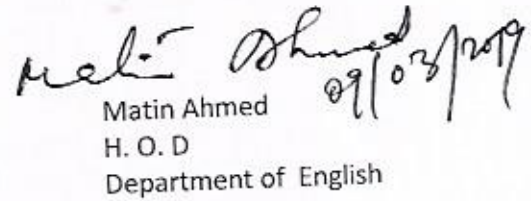 Matin Ahmed
09/03/2019
Matin Ahmed
H. O. D
Department of English